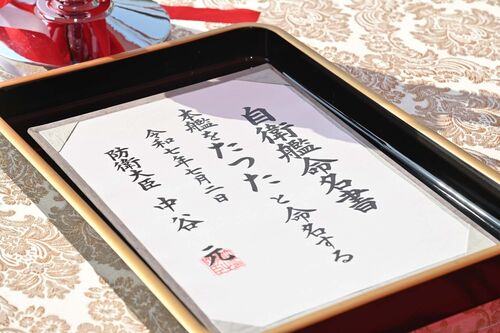 自衛艦命名書
本艦をたつたと命名する
令和七年七月二日
防衛大臣 中谷 元